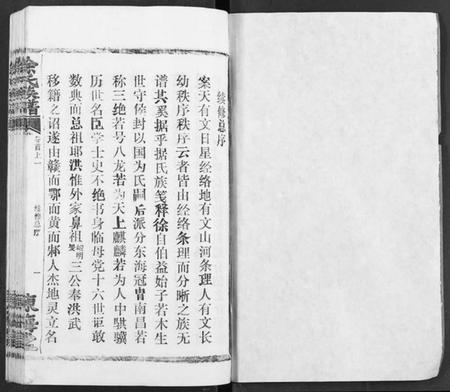 续修总序
案天有文日星经络地有文山河条理人有文长
幼秩序秩序云者皆由经络条理而分晰之族无
谱其奚据乎据氏族笺释徐自伯益始子若木生
世守侯封以国为氏嗣后派分东海冠冑南昌若
称三绝若号八龙若为天上麒麟若为人中骐骥
历世名臣学士史不绝书身临母党十六世讵敢
数典而忘祖耶洪惟外家鼻祖 三公奉洪武
移籍之诏遂由赣而鄂而黄而邾人杰地灵立名
徐氏族谱
卷首上
续修总序
一